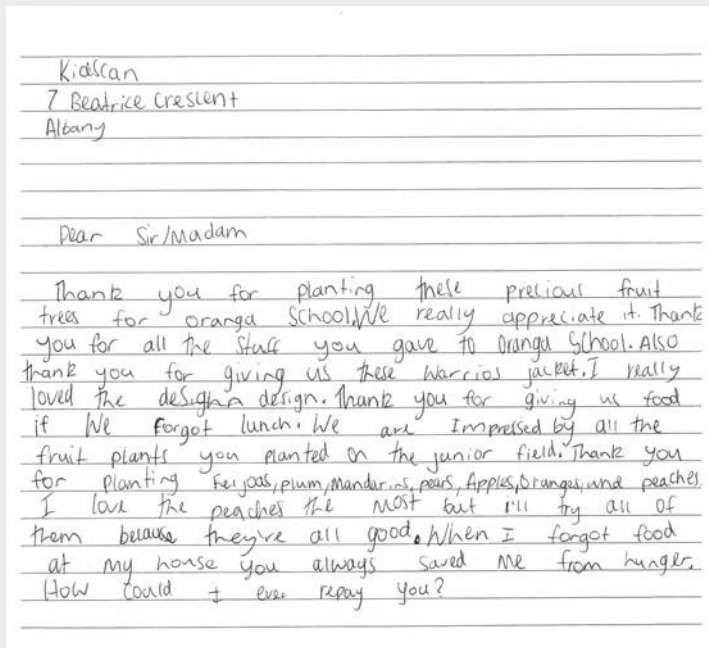 Kidscan
7 Beatrice Crescent
Albany
Dear Sir/Madam
Thank you for planting these precious fruit
trees for oranga School.We really appreciate it. Thank
you for all the stuff you gave to Oranga School. Also
thank you for giving us these Warrios jacket. I really
loved the desighn design. Thank you for giving us food
if We forgot lunch. We are Impressed by all the
fruit plants you planted on the junior field. Thank you
for planting Feijoas, plum, Mandarins, pears, Apples, oranges, and peaches
I love the peaches the most but I'll try all of
them because they're all good. When I forgot food
at my house you always saved me from hunger.
How could I ever repay you?